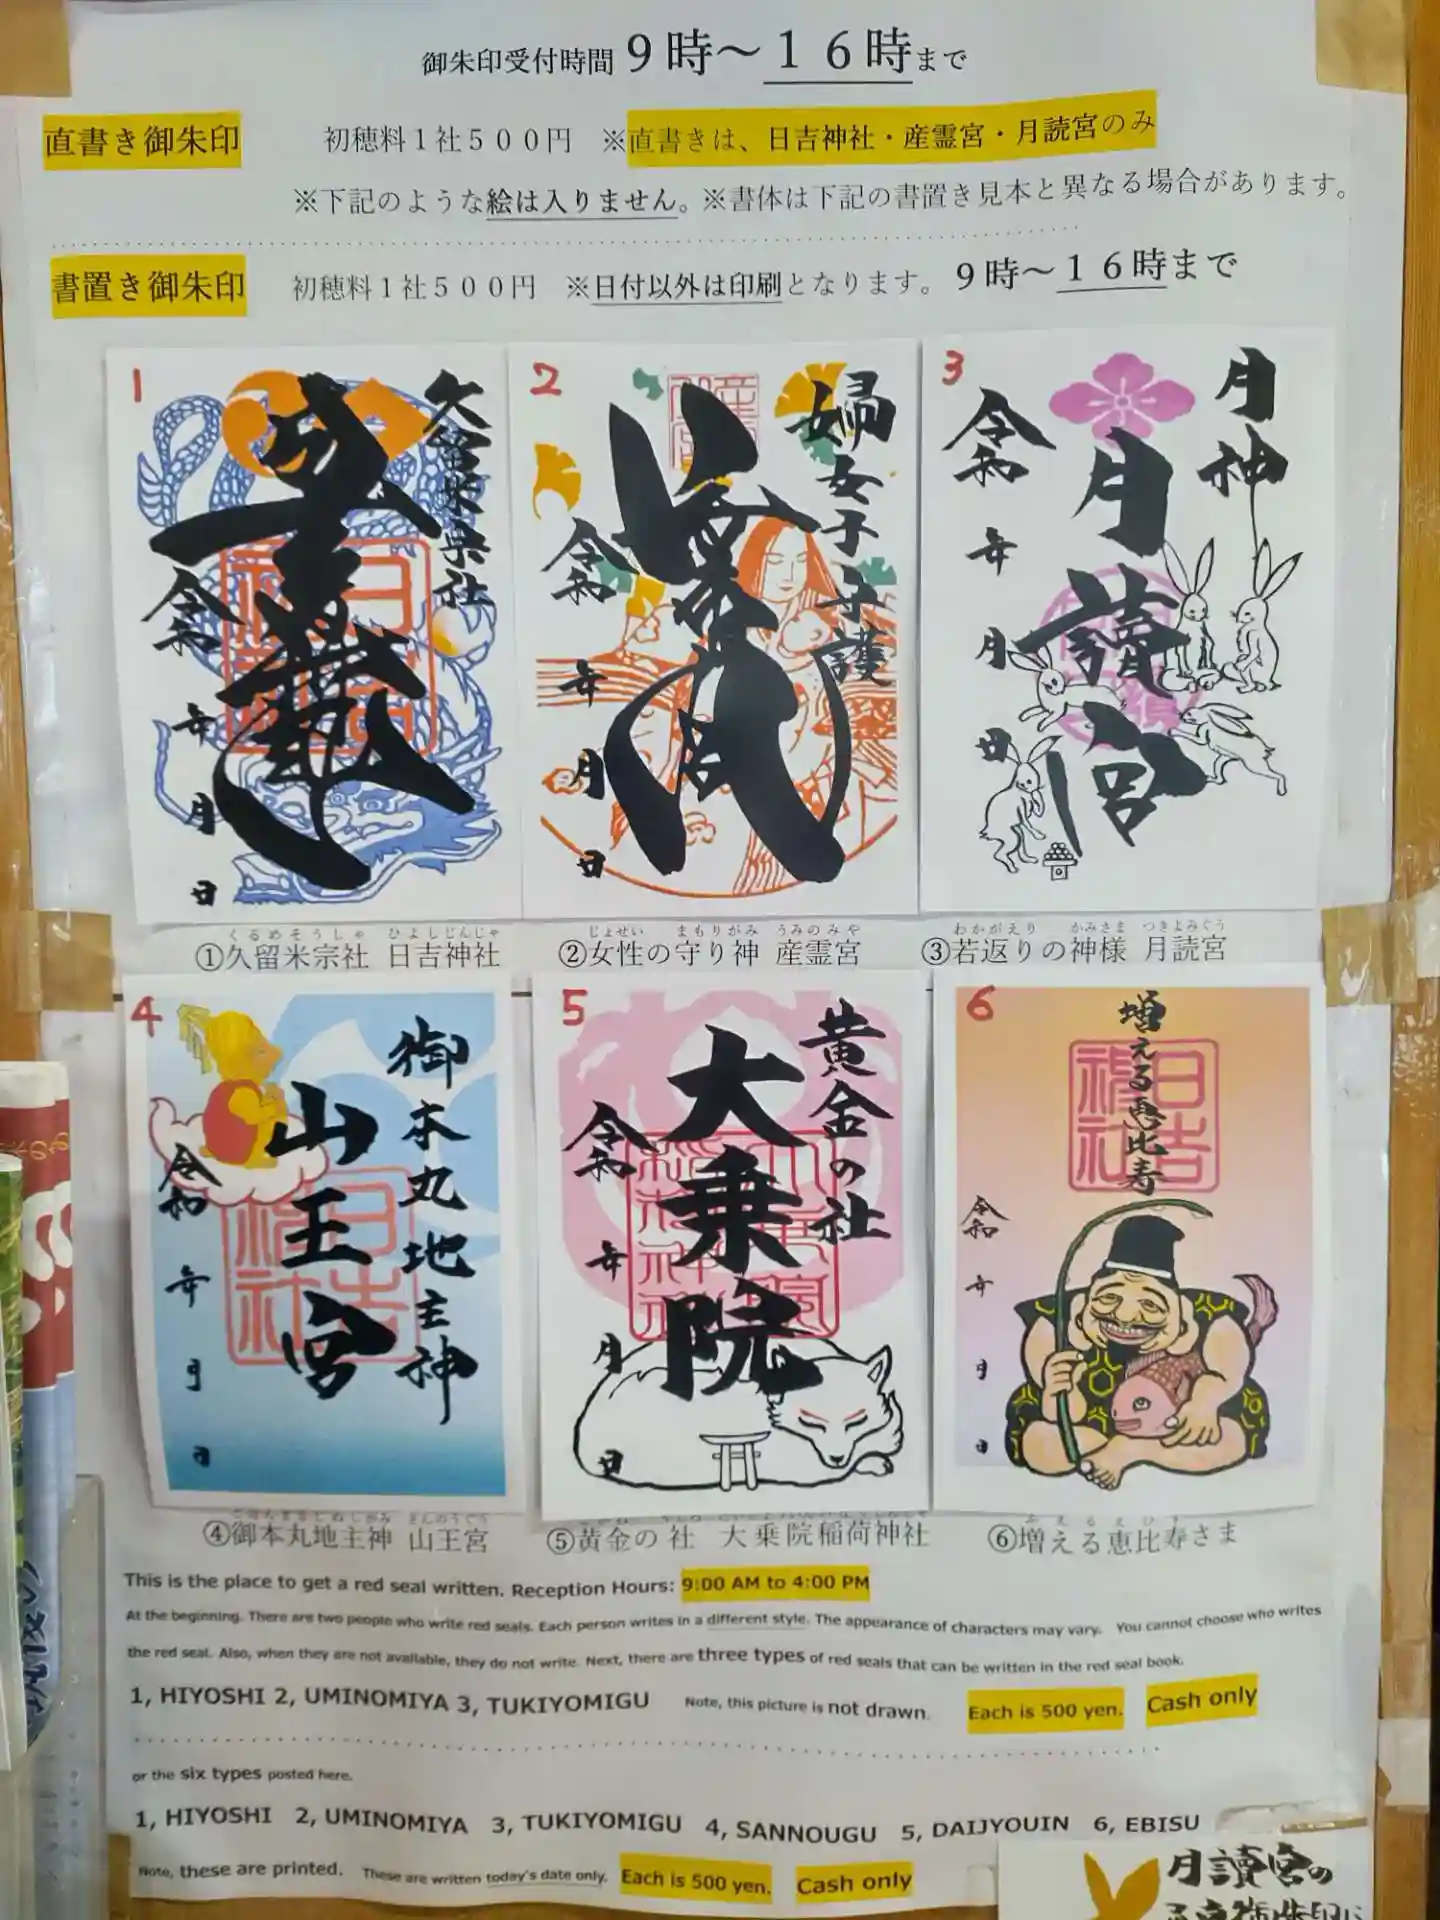 御朱印受付時間 9時～16時まで
直書き御朱印 初穂料1社500円 ※直書きは、日吉神社・産霊宮・月読宮のみ
※下記のような絵は入りません。※書体は下記の書置き見本と異なる場合があります。
書置き御朱印 初穂料1社500円 ※日付以外は印刷となります。 9時～16時まで
1
久留米宗社
令和 年 月 日
2
婦女子守護
令和 年 月 日
3
月神
月讀宮
令和 年 月 日
くるめそうしゃ ひよしじんじゃ
①久留米宗社 日吉神社
じょせい まもりがみ うみのみや
②女性の守り神 産霊宮
わかがえり かみさま つきよみぐう
③若返りの神様 月読宮
4
御本丸地主神
山王宮
日吉神社
令和 年 月 日
5
黄金の社
大乗院
令和 年 月 日
6
増える恵比寿
日吉神社
令和 年 月 日
④御本丸地主神 山王宮
⑤黄金の社 大乗院稲荷神社
ふえるえびす
⑥増える恵比寿さま
This is the place to get a red seal written. Reception Hours: 9:00 AM to 4:00 PM
At the beginning. There are two people who write red seals. Each person writes in a different style. The appearance of characters may vary. You cannot choose who writes
the red seal. Also, when they are not available, they do not write. Next, there are three types of red seals that can be written in the red seal book.
1, HIYOSHI 2, UMINOMIYA 3, TUKIYOMIGU Note, this picture is not drawn. Each is 500 yen. Cash only
or the six types posted here.
1, HIYOSHI 2, UMINOMIYA 3, TUKIYOMIGU 4, SANNOUGU 5, DAIJYOUIN 6, EBISU
Note, these are printed. These are written today's date only. Each is 500 yen. Cash only
月讀宮の